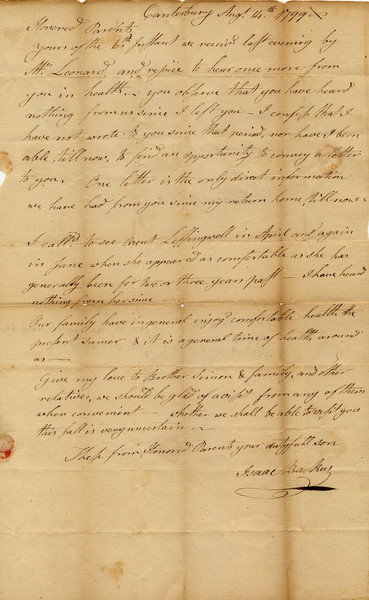 Canterbury Augt. 14th 1799
Honored Parents
Yours of the 6th Instant we receivd last evening by
Mr. Leonard, and rejoice to hear once more from
you in health. you observe that you have heard
nothing from us since I left you — I confess that I
have not wrote to you since that period, nor have I been
able, till now, to find an opportunity to convey a letter
to you. One letter is the only direct information
we have had from you since my return home, till now.
I calld to see Aunt Leffingwell in April and again
in June when she appeared as comfortable as she has
generally been for two or three years past — I have heard
nothing from her since
Our family have in general enjoyd comfortable health the
present sumer & it is a general time of health around
us —
Give my love to Brother Simon & family, and other
relatives, we should be glad of a visit from any of them
when convenient — whether we shall be able to visit you
this fall is very uncertain —
These from, Honored Parents your dutyfull son
Isaac Backus